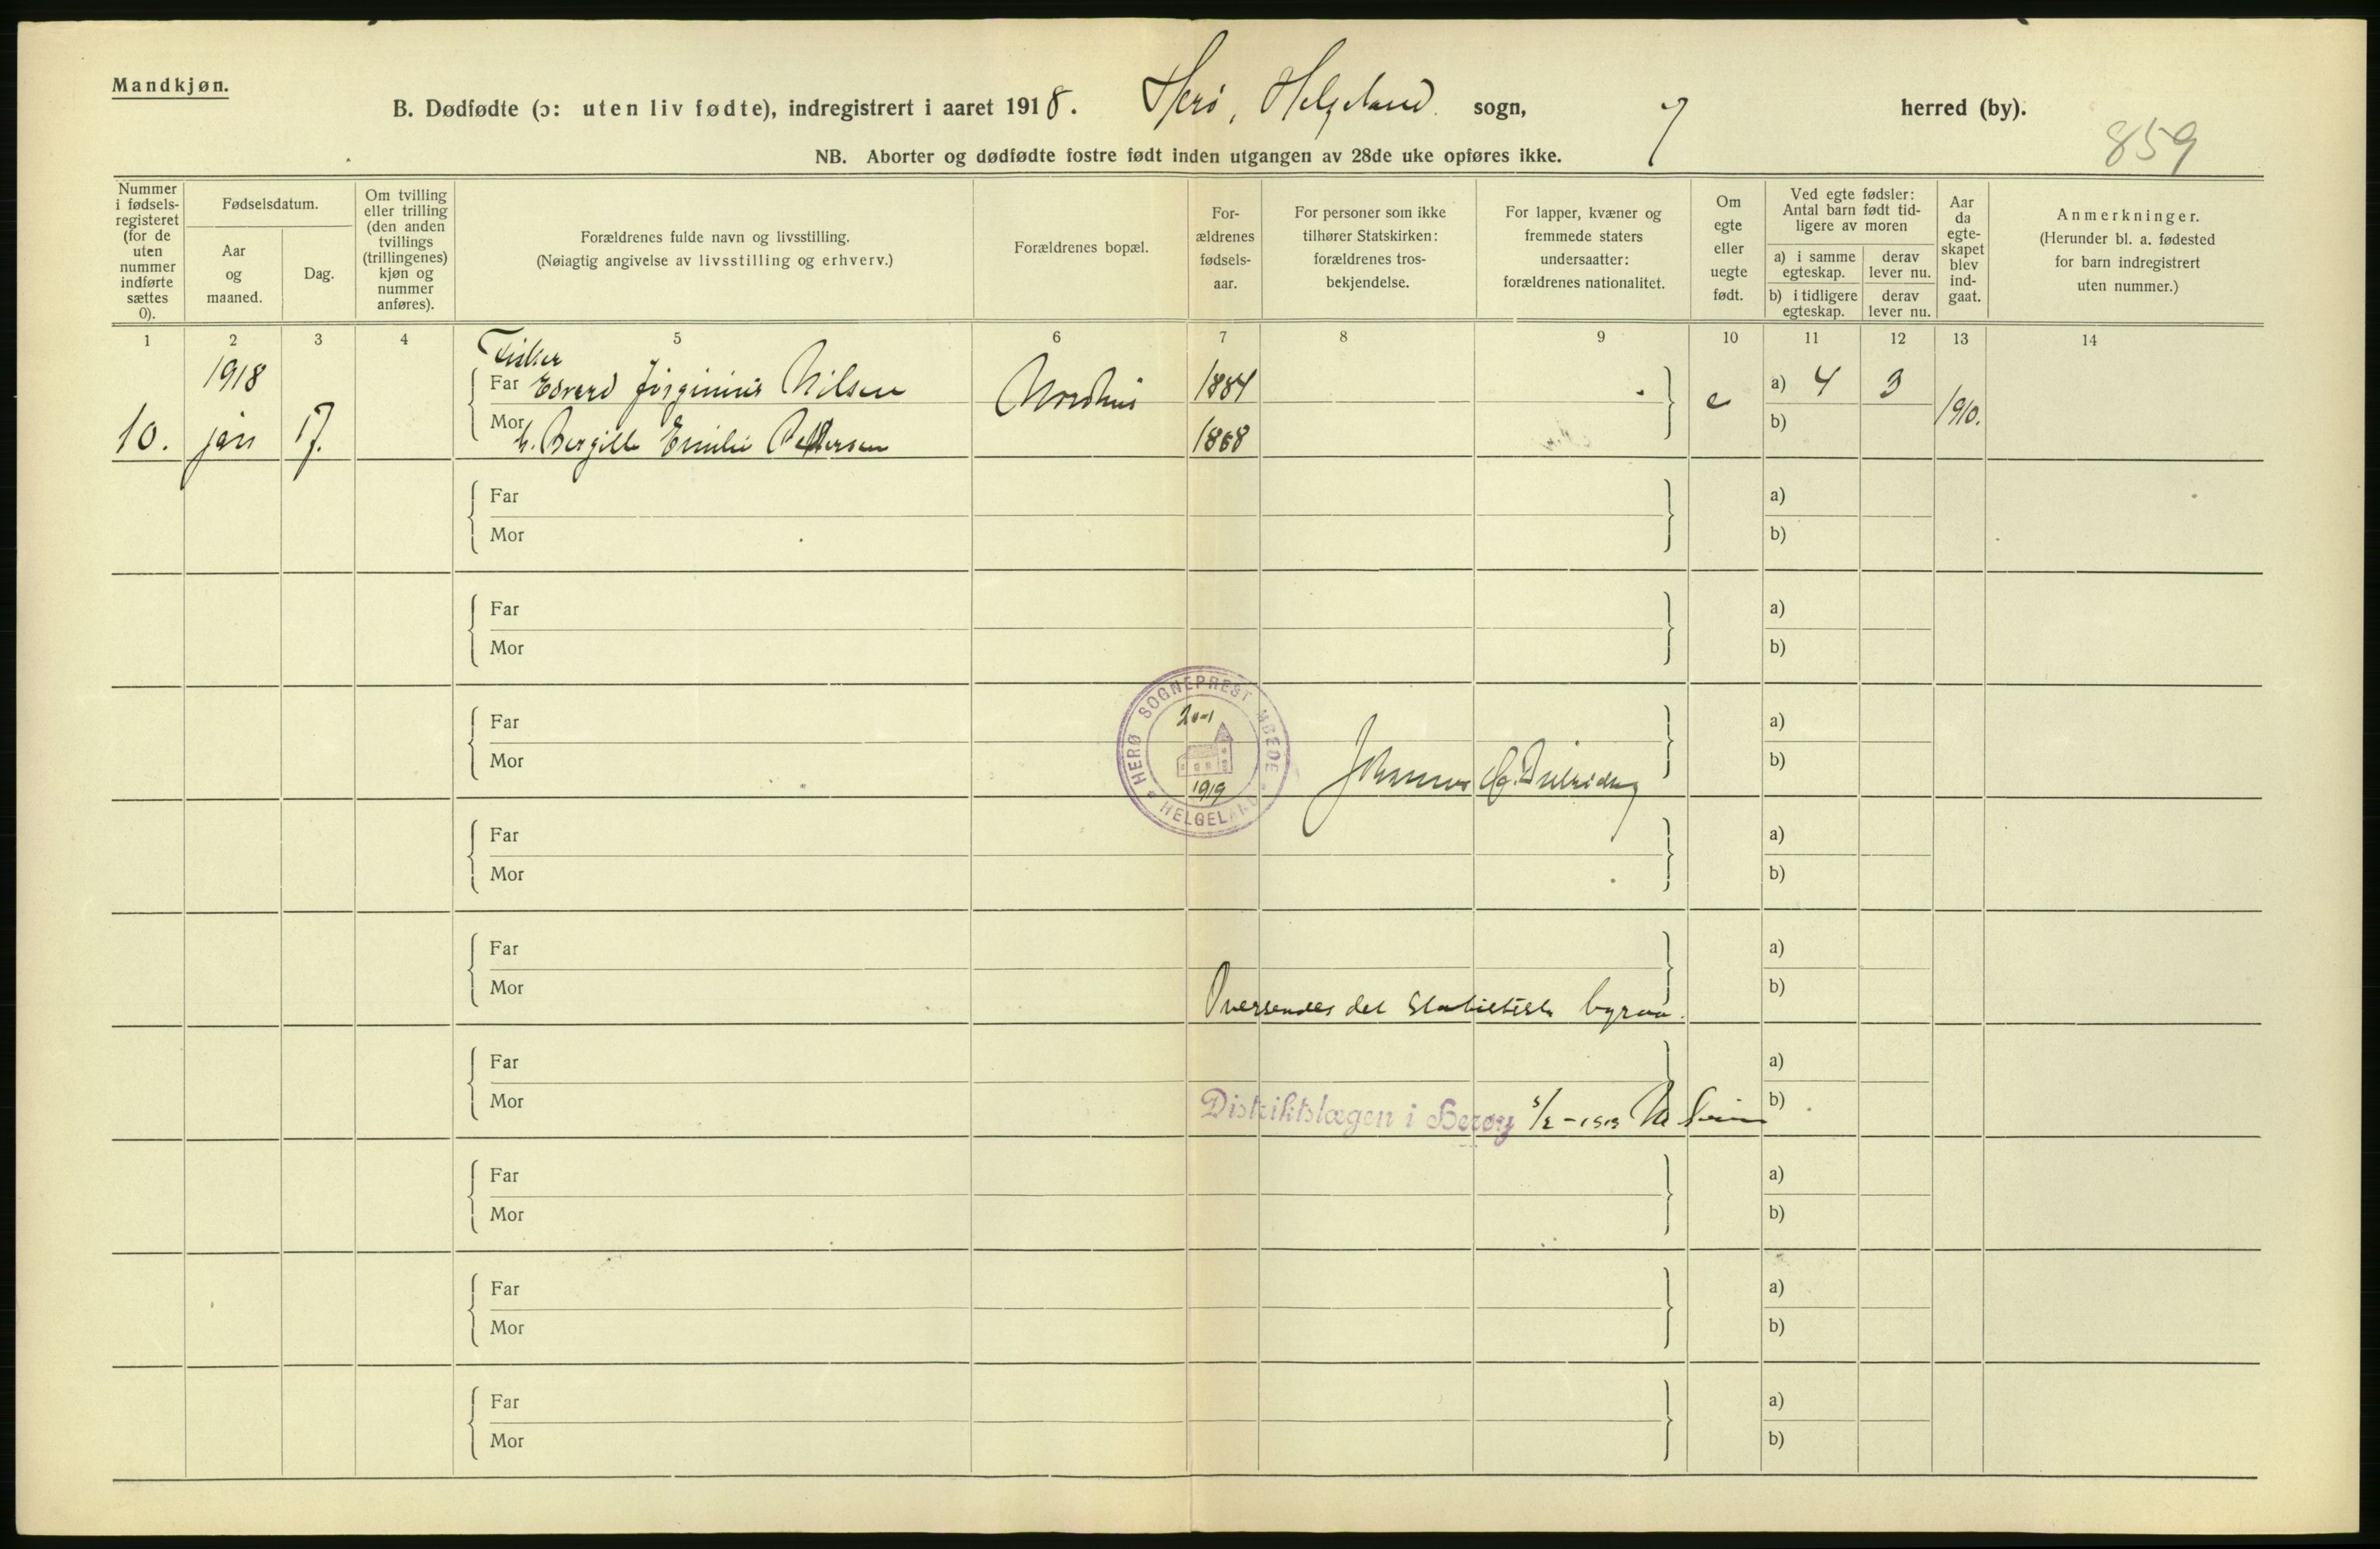 Mandkjøn.
B. Dødfødte (ɔ: uten liv fødte), indregistrert i aaret 1918. Herø, Helgeland. sogn, herred (by).
859
NB. Aborter og dødfødte fostre født inden utgangen av 28de uke opføres ikke.
Nummer
i fødsels-
registeret
(for de
uten
nummer
indførte
sættes
0).
Fødselsdatum.
Aar
og
maaned.
Dag.
Om tvilling
eller trilling
(den anden
tvillings
(trillingenes)
kjøn og
nummer
anføres).
Forældrenes fulde navn og livsstilling.
(Nøiagtig angivelse av livsstilling og erhverv.)
Forældrenes bopæl.
For-
ældrenes
fødsels-
aar.
For personer som ikke
tilhører Statskirken:
forældrenes tros-
bekjendelse.
For lapper, kvæner og
fremmede staters
undersaatter:
forældrenes nationalitet.
Om
egte
eller
uegte
født.
Ved egte fødsler:
Antal barn født tid-
ligere av moren
a) i samme
egteskap.
derav
lever nu.
b) i tidligere
egteskap.
derav
lever nu.
Aar
da
egte-
skapet
blev
ind-
gaat.
Anmerkninger.
(Herunder bl. a. fødested
for barn indregistrert
uten nummer.)
1 2 3 4 5 6 7 8 9 10 11 12 13 14
Fisker
1918 Far Edvard Nilsen 1884 a) 4 3
10. jan 17. Mor Emilie Pettersen 1868 e b) 1910.
Far a)
Mor b)
Far a)
Mor b)
HERØ SOGNEPRESTEMBEDE
HELGELAND
20-1
1919
Far Johannes a)
Mor b)
Far a)
Mor b)
Far a)
Mor b)
Oversendes det statistiske byraa.
Far a)
Mor Distriktslægen i Herøy b)
Far a)
Mor b)
Far a)
Mor b)
Far a)
Mor b)